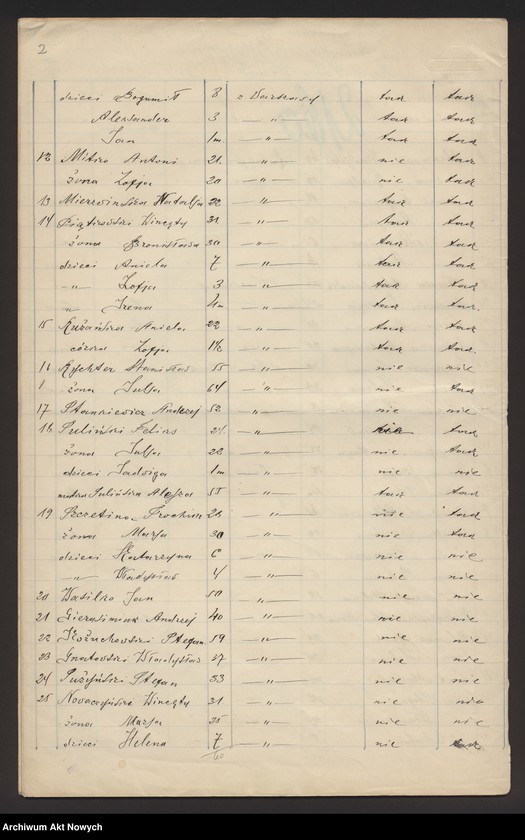 2
dzieci Bogumił 8 z Warszawy tak tak
Aleksander 3 — " — tak tak
Jan 1m. — " — tak tak
12 Mitro Antoni 21 — " — nie tak
żona Zofja 20 — " — nie tak
13 Natalja 22 — " — tak tak
14 Wincenty 31 — " — tak tak
żona Bronisława 30 — " — tak tak
dzieci Aniela 7 — " — tak tak
— " — Zofja 3 — " — tak tak
" Irena 4m — " — tak tak.
15 Aniela 22 — " — tak tak
córka Zofja 1½ — " — tak tak.
16 Rychter Stanisław 55 — " — nie nie
1 żona Julja 64 — " — nie tak
17 Stankiewicz Andrzej 52 — " — nie nie
18 Feliks — " — tak
żona Julja 22 — " — nie tak
dzieci Jadwiga 1m — " — nie nie
matka 55 — " — tak tak
19 26 — " — nie tak
żona Marja 30 — " — nie tak
dzieci Katarzyna 6 — " — nie nie
— " — Władysław 4 — " — nie nie
20 Wasilko Jan 50 — " — nie nie
21 Andrzej 40 — " — nie nie
22 Kożuchowski Stefan 59 — " — nie nie
23 Gnatowski Władysław 27 — " — nie nie
24 Stefan 33 — " — nie nie
25 Wincenty 31 — " — nie nie
żona Marja 25 — " — nie nie
dzieci Helena 7 — " — nie
Archiwum Akt Nowych